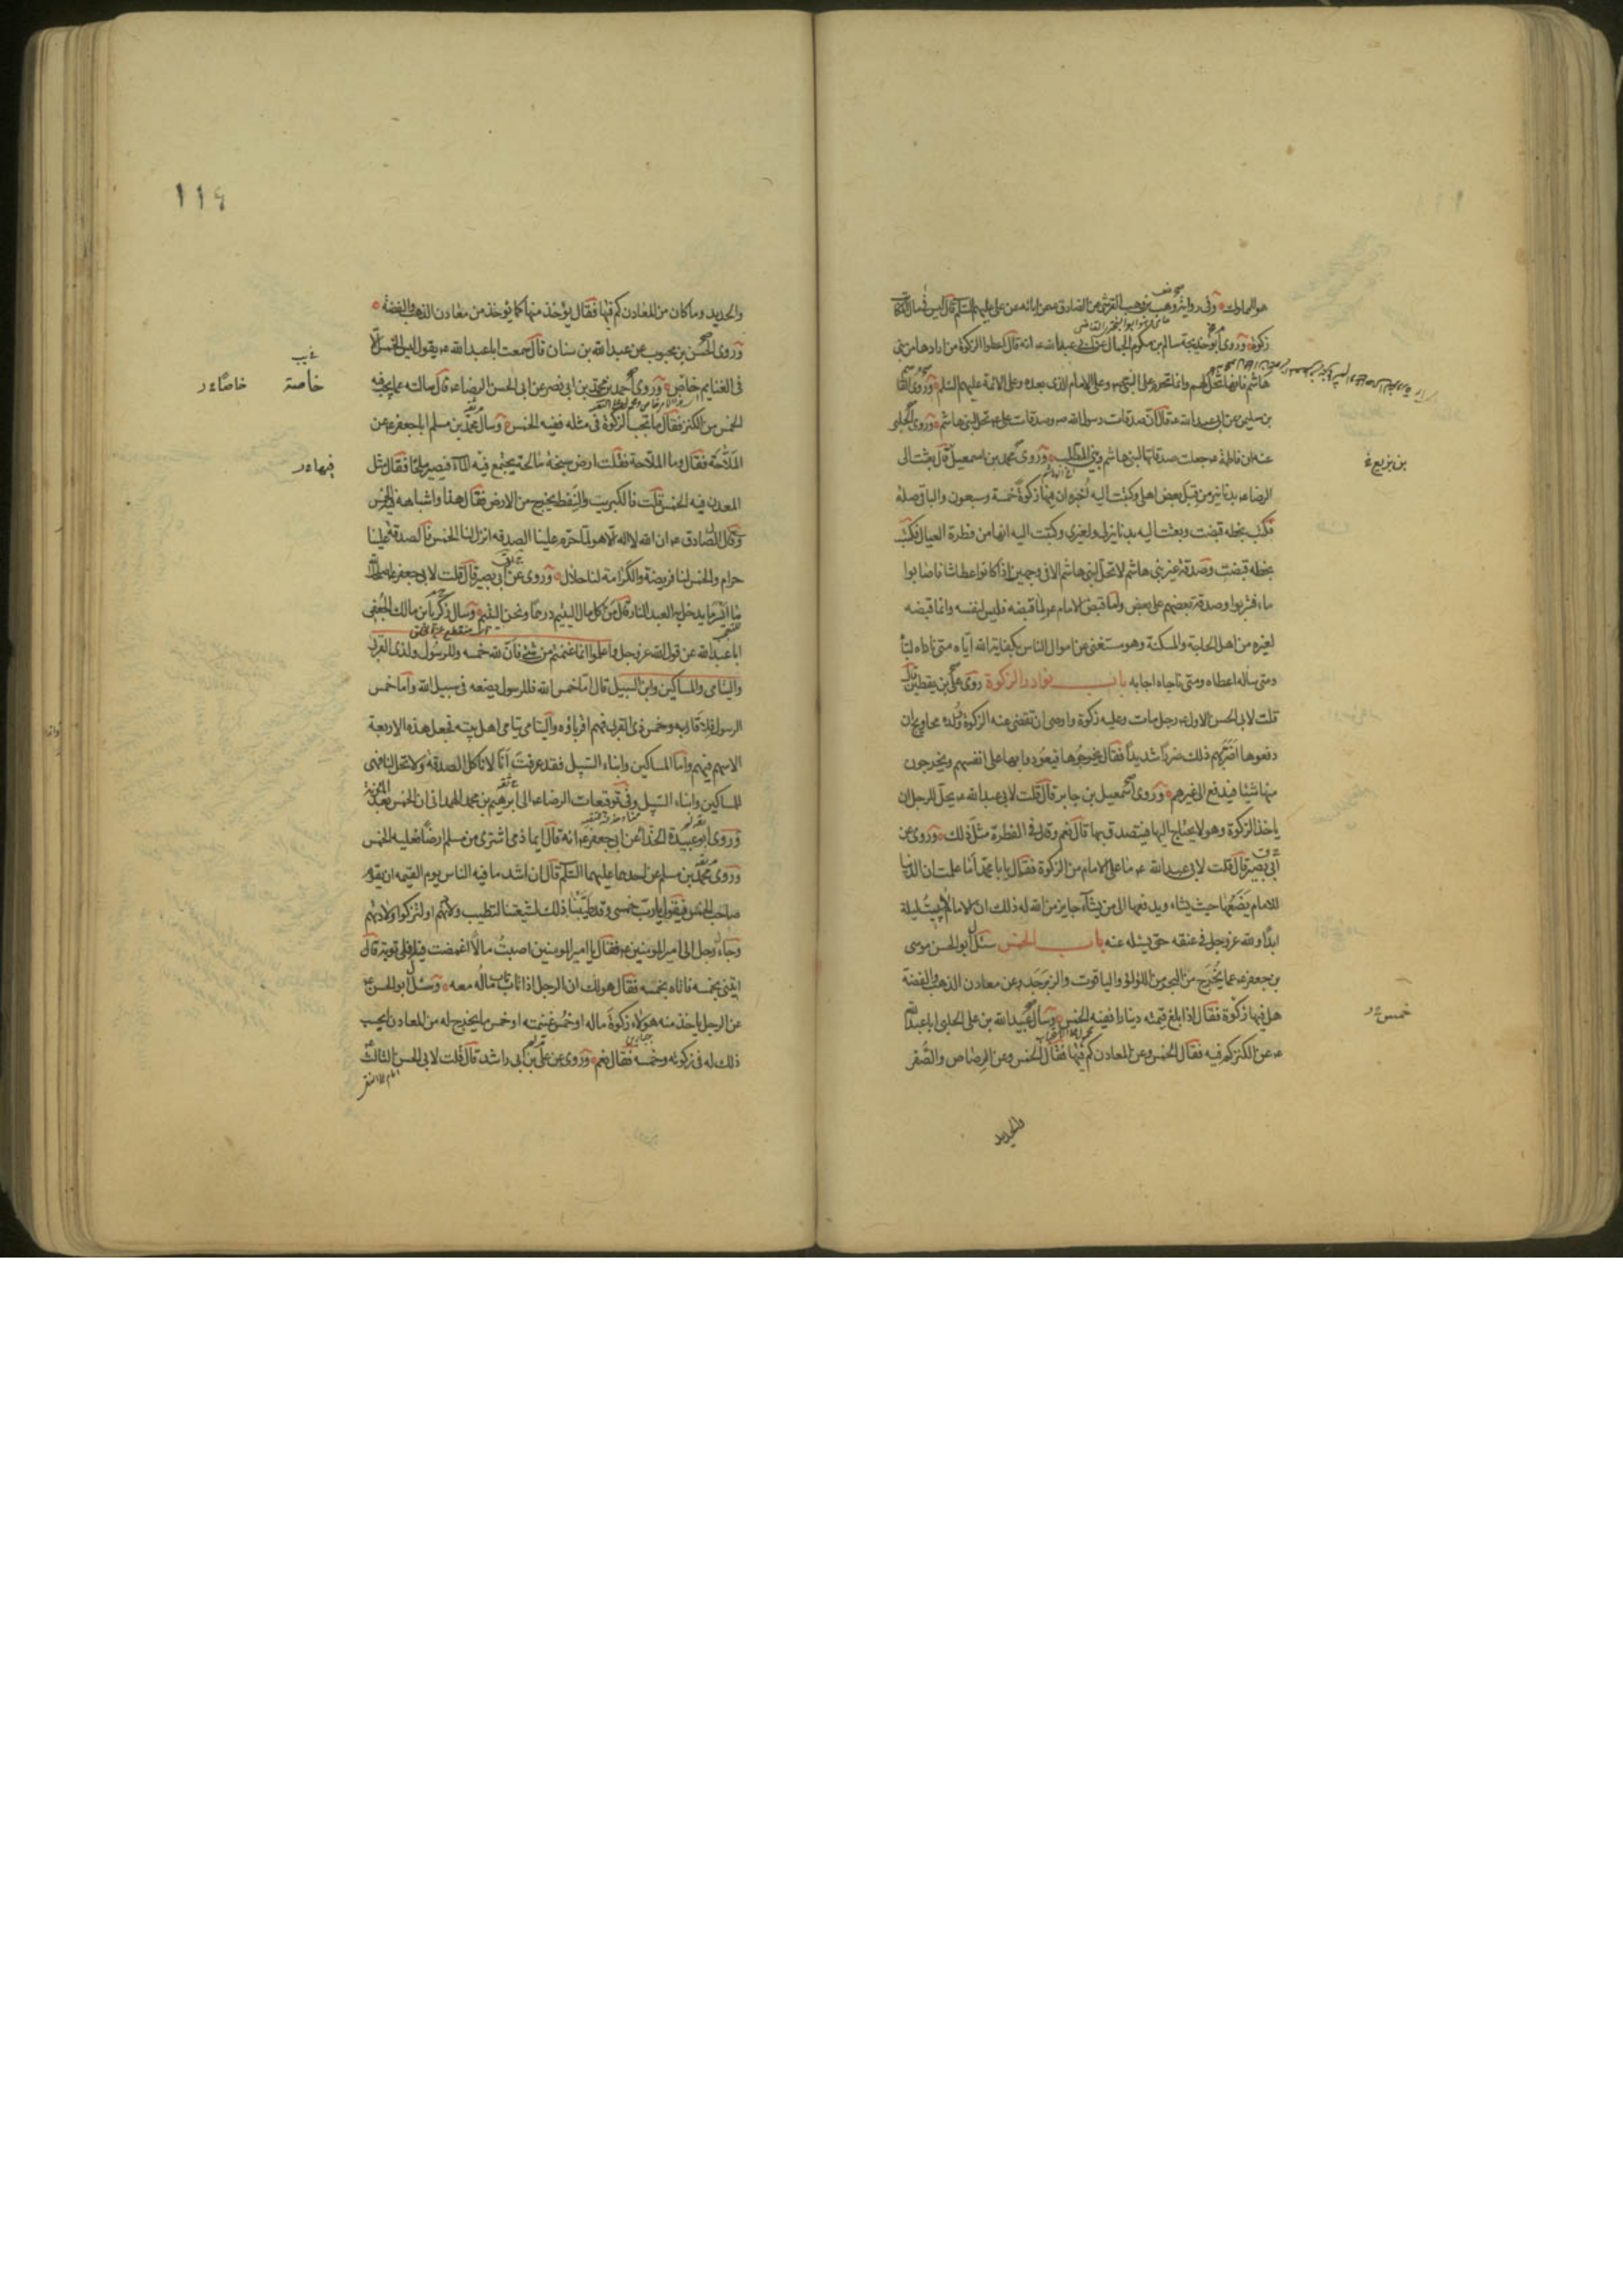 هو المملوك وفی روایة وهب بن وهب القرشی عن الصادق عن ابائه عن علی علیهم السلم قال لیس فی مال المکاتب
زکوة وروی ابو خدیجة سالم بن مکرم الجمال عن ابی عبد الله ع انه قال اعطوا الزکوة من ارادها من بنی
هاشم فانها تحل لهم وانما تحرم علی النبی ص وعلی الامام الذی بعده وعلی الائمة علیهم السلم وروی القاسم
بن سلیمن عن ابی عبد الله ع قال ان صدقات رسول الله ص وصدقات علی ع تحل لبنی هاشم وروی الحلبی
عنه ان فاطمة ع جعلت صدقاتها لبنی هاشم وبنی المطلب وروی محمد بن اسمعیل قال بعثت الی
بن بزیع خ
الرضا ع بدنانیر من قبل بعض اهلی وکتبت الیه اخبره ان فیها زکوة خمسة وسبعون والباقی صلة
فکتب بخطه قبضت وبعثت الیه بدنانیر لی ولغیری وکتبت الیه انها من فطرة العیال فکتب
بخطه قبضت وصدقة غیر بنی هاشم لا تحل لبنی هاشم الا فی وجهین اذا کانوا عطاشا فاصابوا
ماء فشربوا وصدقة بعضهم علی بعض واما قبض الامام ع لما قبضه فلیس لنفسه وانما قبضه
لغیره من اهل الحاجة والمسکنة وهو مستغنی عن اموال الناس بکفایة الله ایاه متی ناداه لبّاه
ومتی ساله اعطاه ومتی ناجاه اجابه باب نوادر الزکوة روی علی بن یقطین قال
قلت لابی الحسن الاول ع رجل مات وعلیه زکوة واوصی ان تقضی عنه الزکوة وولده محاویج ان
دفعوها اضرّ بهم ذلک ضررا شدیدا فقال یخرجوها فیعودوا بها علی انفسهم ویخرجون
منها شیئا فیدفع الی غیرهم وروی اسمعیل بن جابر قال قلت لابی عبد الله ع یحل للرجل ان
یاخذ الزکوة وهو لا یحتاج الیها فیتصدق بها قال نعم وقال فی الفطرة مثل ذلک وروی عن
ابی بصیر قال قلت لابی عبد الله ع ما علی الامام من الزکوة فقال یا با محمد اما علمت ان الدنیا
للامام یضعها حیث یشاء ویدفعها الی من یشآء جایز من الله له ذلک ان الامام لا یبیت لیلة
ابدا ولله عز وجل فی عنقه حق یسئله عنه باب الخمس سئل ابو الحسن موسی
بن جعفر ع عما یخرج من البحر من اللؤلؤ والیاقوت والزبرجد وعن معادن الذهب والفضة
هل فیها زکوة فقال اذا بلغ قیمته دینارا ففیه الخمس وسال عبید الله بن علی الحلبی ابا عبد الله
ع عن الکنز کم فیه فقال الخمس وعن المعادن کم فیها فقال الخمس وعن الرصاص والصفر
والحدید
١١٤
والحدید وما کان من المعادن کم فیها فقال یؤخذ منها کما یؤخذ من معادن الذهب والفضة
وروی الحسن بن محبوب عن عبد الله بن سنان قال سمعت ابا عبد الله ع یقول لیس الخمس الا
فی الغنایم خاصّ وروی احمد بن محمد بن ابی نصر عن ابی الحسن الرضا ع قال سالته عما یجب فیه
خاصة
الخمس من الکنز فقال ما تجب الزکوة فی مثله ففیه الخمس وسال محمد بن مسلم ابا جعفر ع عن
الملّاحة فقال وما الملاحة فقلت ارض سبخة مالحة یجتمع فیه المآء فیصیر ملحا فقال مثل
فیها
المعدن فیه الخمس قلت فالکبریت والنفط یخرج من الارض فقال هذا واشباهه فیه الخمس
وقال الصادق ع ان الله لا اله الا هو لما حرم علینا الصدقة انزل لنا الخمس فالصدقة علینا
حرام والخمس لنا فریضة والکرامة لنا حلال وروی عن ابی بصیر قال قلت لابی جعفر ع اصلحک الله
ما ایسر ما یدخل به العبد النار قال من اکل مال الیتیم درهما ونحن الیتیم وسال زکریا بن مالک الجعفی
ابا عبد الله عن قول الله عز وجل واعلموا انما غنمتم من شئ فان لله خمسه وللرسول ولذی القربی
والیتامی والمساکین وابن السبیل قال اما خمس الله فللرسول یضعه فی سبیل الله واما خمس
الرسول فلاقاربه وخمس ذی القربی فهم اقرباؤه والیتامی یتامی اهل بیته فجعل هذه الاربعة
الاسهم فیهم واما المساکین وابناء السبیل فقد عرفت انا لا ناکل الصدقة ولا تحل لنا فهی
للمساکین وابناء السبیل وفی توقیعات الرضا ع الی ابرهیم بن محمد الهمدانی ان الخمس بعد المؤنة
وروی ابو عبیدة الحذاء عن ابی جعفر ع انه قال ایما ذمی اشتری من مسلم ارضا فعلیه الخمس
وروی محمد بن مسلم عن احدهما علیهما السلم قال ان اشد ما فیه الناس یوم القیمة ان یقوم
صاحب الخمس فیقول یا رب خمسی وقد طیبنا ذلک لشیعتنا لتطیب ولادتهم او لتزکوا ولادتهم
وجاء رجل الی امیر المومنین ع فقال یا امیر المومنین اصبت مالا اغمضت فیه افلی توبة قال
ایتنی بخمسه فاتاه بخمسه فقال هو لک ان الرجل اذا تاب تاب ماله معه وسئل ابو الحسن ع
عن الرجل یاخذ منه هولاء زکوة ماله او خمس غنیمته او خمس ما یخرج له من المعادن ایحسب
ذلک له فی زکوته وخمسه فقال نعم وروی عن علی بن ابی راشد قال قلت لابی الحسن الثالث ع